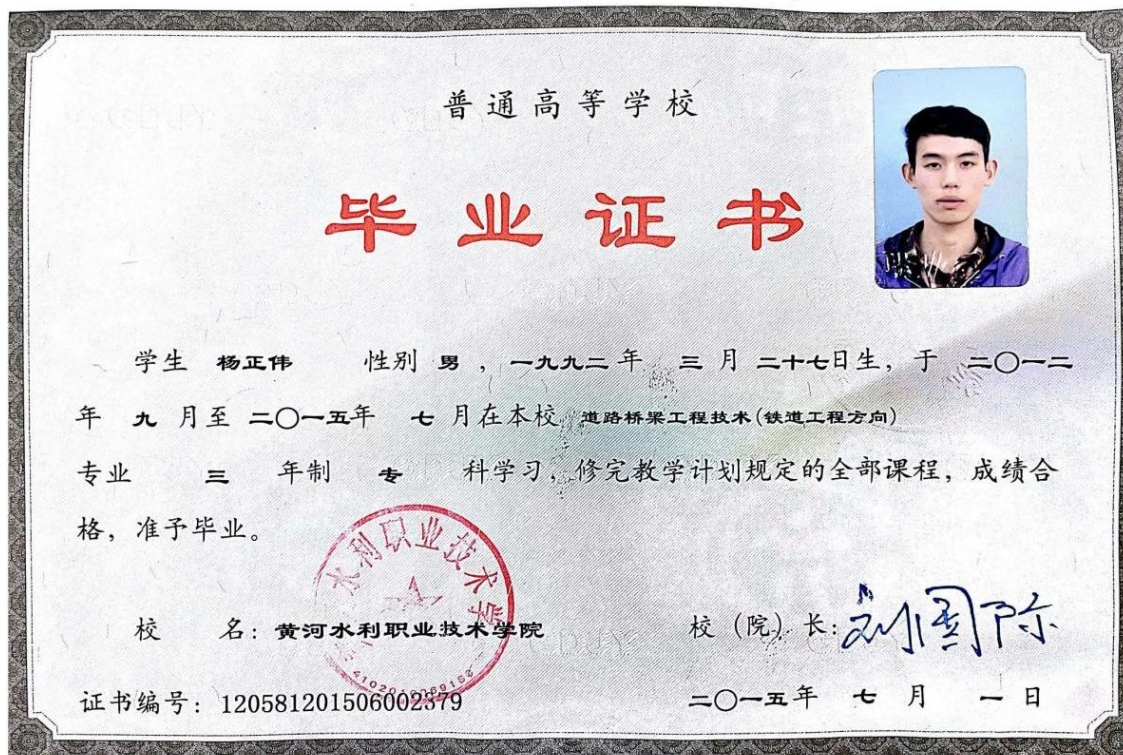 普通高等学校
毕业证书
学生 杨正伟 性别 男 ，一九九二 年 三 月 二十七日生，于 二〇一二
年 九 月至 二〇一五年 七 月在本校 道路桥梁工程技术(铁道工程方向)
专业 三 年制 专 科学习，修完教学计划规定的全部课程，成绩合
格，准予毕业。
水利职业技术学
校 名：黄河水利职业技术学院
校（院）长：刘国际
证书编号：120581201506002379
二〇一五年 七 月 一 日